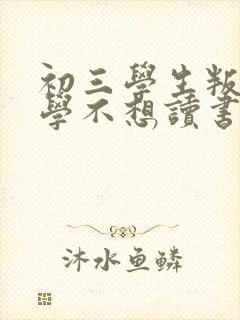 初三學生叛
學不想讀書
沐水鱼鱗